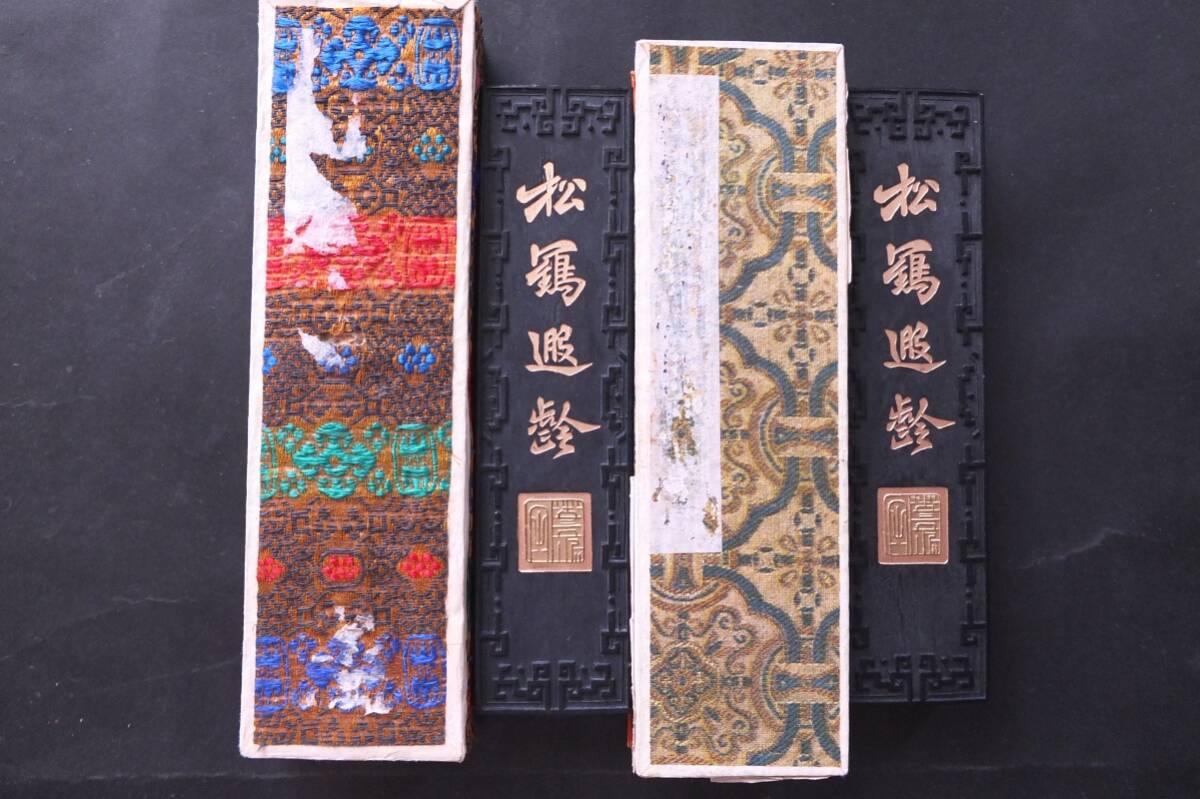 松鶴遐齡
松鶴遐齡